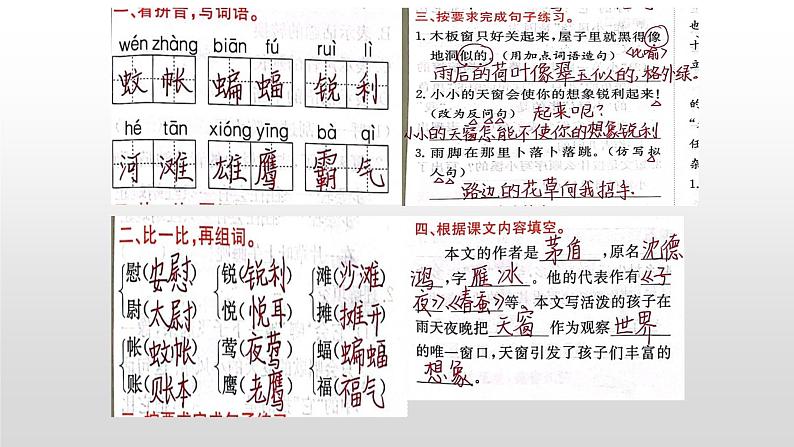 一、看拼音，写词语。
wén zhàng biān fú ruì lì
蚊帐 蝙蝠 锐利
hé tān xióng yīng bà qì
河滩 雄鹰 霸气
二、比一比，再组词。
慰(安慰) 锐(锐利) 滩(沙滩)
尉(大尉) 悦(悦耳) 摊(摊开)
帐(蚊帐) 莺(夜莺) 蝠(蝙蝠)
账(账本) 鹰(老鹰) 福(福气)
三、按要求完成句子练习。
1. 木板窗只好关起来，屋子里就黑得像
地洞似的。(用加点词语造句)〈比喻〉
雨后的荷叶像翠玉似的，格外绿。
2. 小小的天窗会使你的想象锐利起来!
(改为反问句) 起来呢?
小小的天窗怎能不使你的想象锐利
3. 雨脚在那里卜落卜落跳。(仿写拟
人句)
路边的花草向我招手.
四、根据课文内容填空。
本文的作者是茅盾，原名沈德
鸿，字雁冰。他的代表作有《子
夜》《春蚕》等。本文写活泼的孩子在
雨天夜晚把天窗作为观察世界
的唯一窗口，天窗引发了孩子们丰富的
想象。